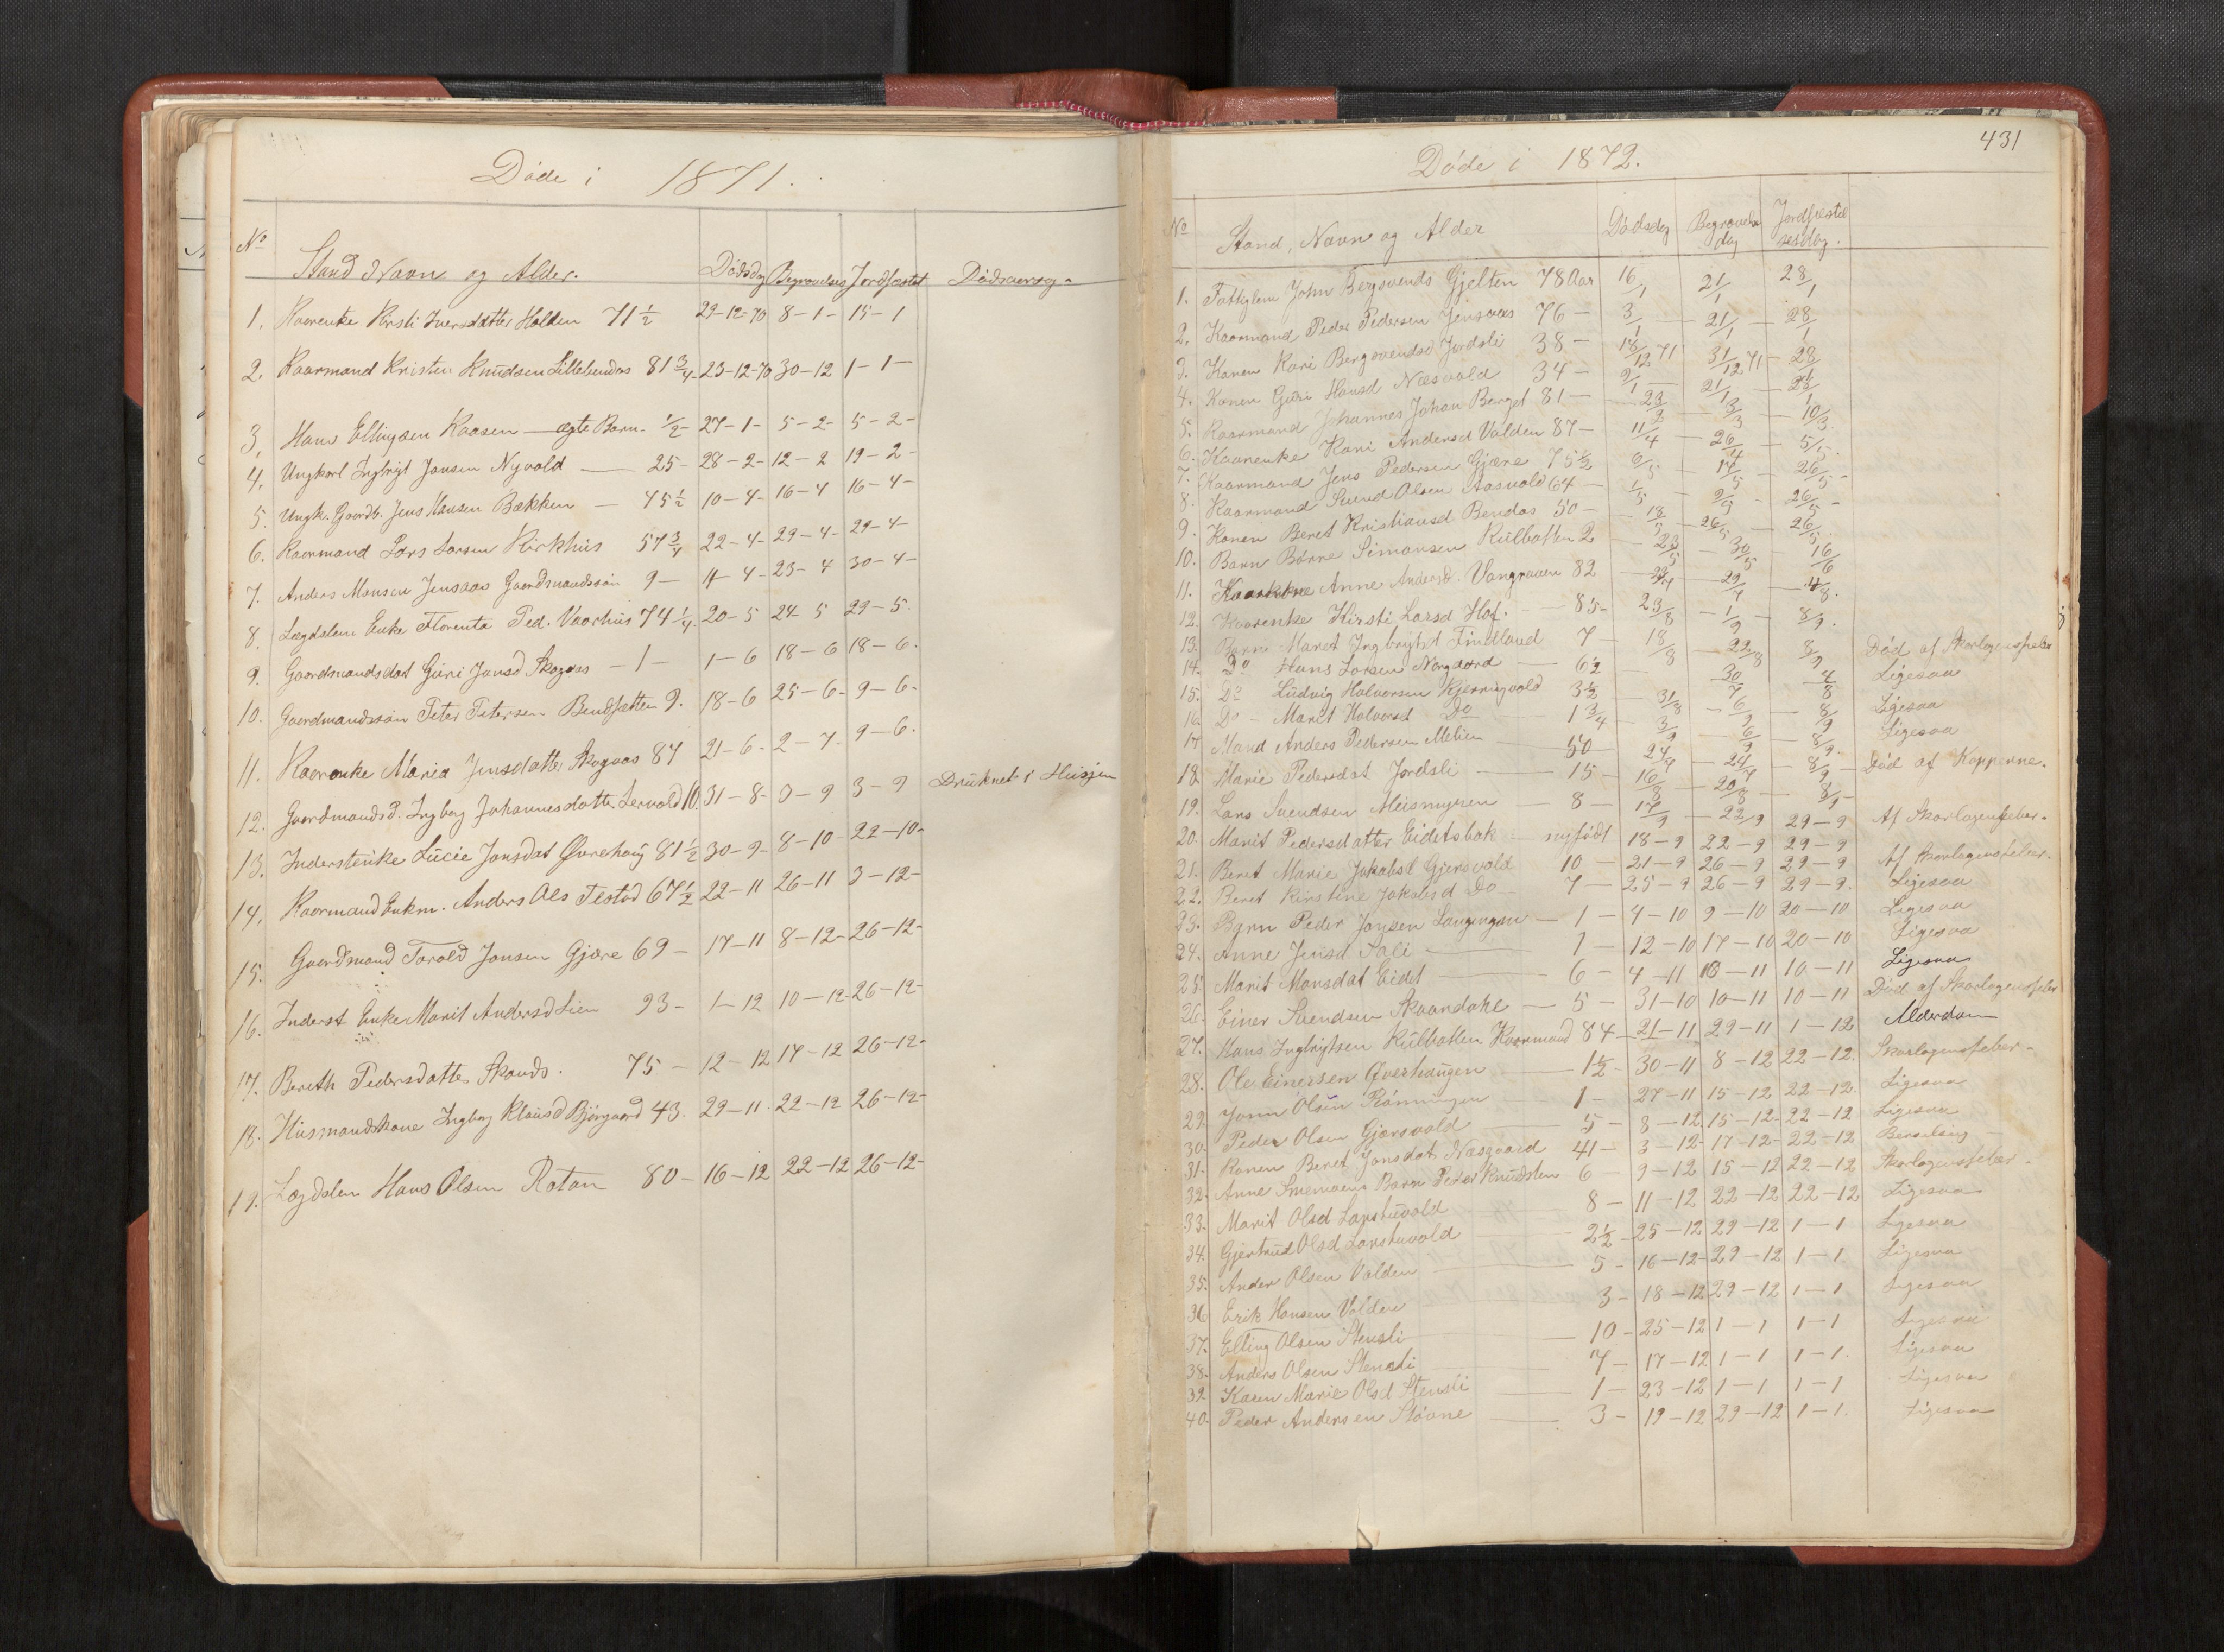 Døde i 1871.
No Stand Navn og Alder. Dødsdag Begravelses Jordfæstet Dødsaarsag
1. Kaarenke Kirsti Iversdatter Holden 71½ 29-12-70 8-1- 15-1
2. Kaarmand Kristen Knudsen Lillebudas 81¾ 23-12-70 30-12 1-1-
3. Hans Ellingsen Kaasen — ægte Barn ½- 27-1- 5-2- 5-2-
4. Ungkarl Ingbrigt Jonsen Nyvold — 25- 28-2- 12-2 19-2-
5. Ungk. Gaardb. Jens Hansen Bækken — 45½ 10-4- 16-4 16-4-
6. Kaarmand Lars Larsen Kirkhus 57¾ 22-4- 29-4- 29-4-
7. Anders Monsen Jensaas Gaardmandssøn 9- 11-4- 23-4 30-4-
8. Lægdslem Enke Florenta Ped. Vaarhus 74¼ 20-5 24 5 29-5.
9. Gaardmandsdat Guri Jonsd Skogaas -1- 1-6 18-6 18-6.
10. Gaardmandssøn Peter Petersen Bendsetten 9. 18-6 25-6- 9-6-
11. Kaarenke Maria Jensdatter Skogaas 87 21-6- 2-7- 9-6.
12. Gaardmandsd. Ingborg Johannesdatter Lervold 10. 31-8- 3-9 3-9 Druknet i Husjøen
13. Inderstenke Lucie Jonsdat Øvrehaug 81½ 30-9- 8-10- 22-10-
14. Kaarmand Enkm. Anders Ols Festod 67½ 22-11 26-11 3-12-
15. Gaardmand Torold Jonsen Gjære 69- 17-11 8-12- 26-12-
16. Inderst Enke Marit Andersd Lien 93- 1-12 10-12- 26-12-
17. Bereth Pedersdatter Skouds. 75- 12-12 17-12 26-12-
18. Husmandskone Ingborg Klausd Bjørgaard 43. 29-11 22-12 26-12-
19. Lægdslem Hans Olsen Rotan 80- 16-12 22-12 26-12-
431
Døde i 1872.
No Stand, Navn og Alder Dødsdag Begravelsesdag Jordfæstelsesdag.
1. Fattiglem John Bergsvends Gjelten 78 Aar 16/1 21/1 28/1
2. Kaarmand Peder Pedersen Jensaas 76- 3/1 21/1 28/1
3. Konen Kari Bergsvendsd Jordsli 38- 18/12 71 31/12 71 28/1
4. Konen Guri Hansd Næsvold 34- 9/1 21/1
5. Kaarmand Johannes Johan Berget 81- 23/2 3/3 10/3.
6. Kaarenke Kari Andersd Volden 87- 11/4 26/4 5/5.
7. Kaarmand Jens Pedersen Gjære 75½ 6/5 17/5 26/5-
8. Kaarmand Svend Olsen Aasvold 64- 1/5 9/5 26/5-
9. Konen Beret Kristiansd Bendas 50- 18/5 26/5 26/5.
10. Barn Børre Simonsen Kulbotten 2 23/5 30/5 16/6
11. Kaarkone Anne Andersd. Vongraven 82 29/7
12. Kaarenke Kirsti Larsd Hof. 85- 23/8 1/9 8/9.
13. Barn Maret Ingbrigtd Findland 7- 18/8 22/8 8/9 Død af Skarlagensfeber
14. Do Hans Larsen Norgaard 6½ 30/7 4/8 Ligesaa
15. Do Ludvig Halvorsen Kjerringvold 3½ 31/8 6/9 8/9 Ligesaa
16. Do - Marit Halvorsd Do 1¾ 3/9 6/9 8/9. Ligesaa
17 Mand Anders Pedersen Melien 50- 24/7 8/9- Død af Kopperne.
18. Marie Pedersdat Jordsli 15- 16/8 20/8
19. Lars Svendsen Meismyren 8- 17/9 22/9 29-9 Af Skarlagensfeber.
20. Marit Pedersdatter Eidetsbak nyfødt 18-9 22-9 29-9
21. Beret Marie Jakobsd Gjersvold 10- 21-9 26-9 29-9 Af Skarlagensfeber.
22. Beret Kirstine Jakobsd Do 7- 25-9 26-9 29-9. Ligesaa
23. Barn Peder Jonsen Langengen 1- 4-10 9-10 20-10 Ligesaa
24. Anne Jensd Sali 1- 12-10 17-10 20-10 Ligesaa
25. Marit Monsdat Eidet 6- 4-11 10-11 10-11 Ligesaa
26. Einer Svendsen Skaandahl 5- 31-10 10-11 10-11 Død af Skarlagensfeber
27. Hans Ingbrigtsen Kulbotten Kaarmand 84- 21-11 29-11 1-12 Alderdom
28. Ole Einersen Øverhaugen 1½- 30-11 8-12 22-12. Skarlagensfeber-
29. Jonn Olsen Rønningen 1- 27-11 15-12 22-12. Ligesaa
30. Peder Olsen Gjersvold 5- 8-12 15-12- 22-12 Ligesaa
31. Konen Beret Jonsdat Næsgaard 41- 3-12- 17-12- 22-12 Barselseng
32. Anne Smemoens Barn Peder Knudsten 6- 9-12 15-12 22-12 Skarlagensfeber-
33. Marit Olsd Larstuvold 8- 11-12 22-12 22-12 Ligesaa
34. Gjertrud Olsd Larstuvold 2½- 25-12 29-12 1-1 Ligesaa
35. Anders Olsen Volden 5- 16-12- 29-12 1-1 Ligesaa
36 Erik Hansen Volden 3- 18-12 29-12 1-1 Ligesaa
37. Elling Olsen Stensli 10- 25-12 1-1 1-1 Ligesaa
38. Anders Olsen Stensli 7- 17-12 1-1 1-1. Ligesaa
39. Karen Marie Olsd Stensli 1- 23-12 1-1 1-1 Ligesaa
40. Peder Andersen Støvne 3- 19-12 29-12 1-1. Ligesaa